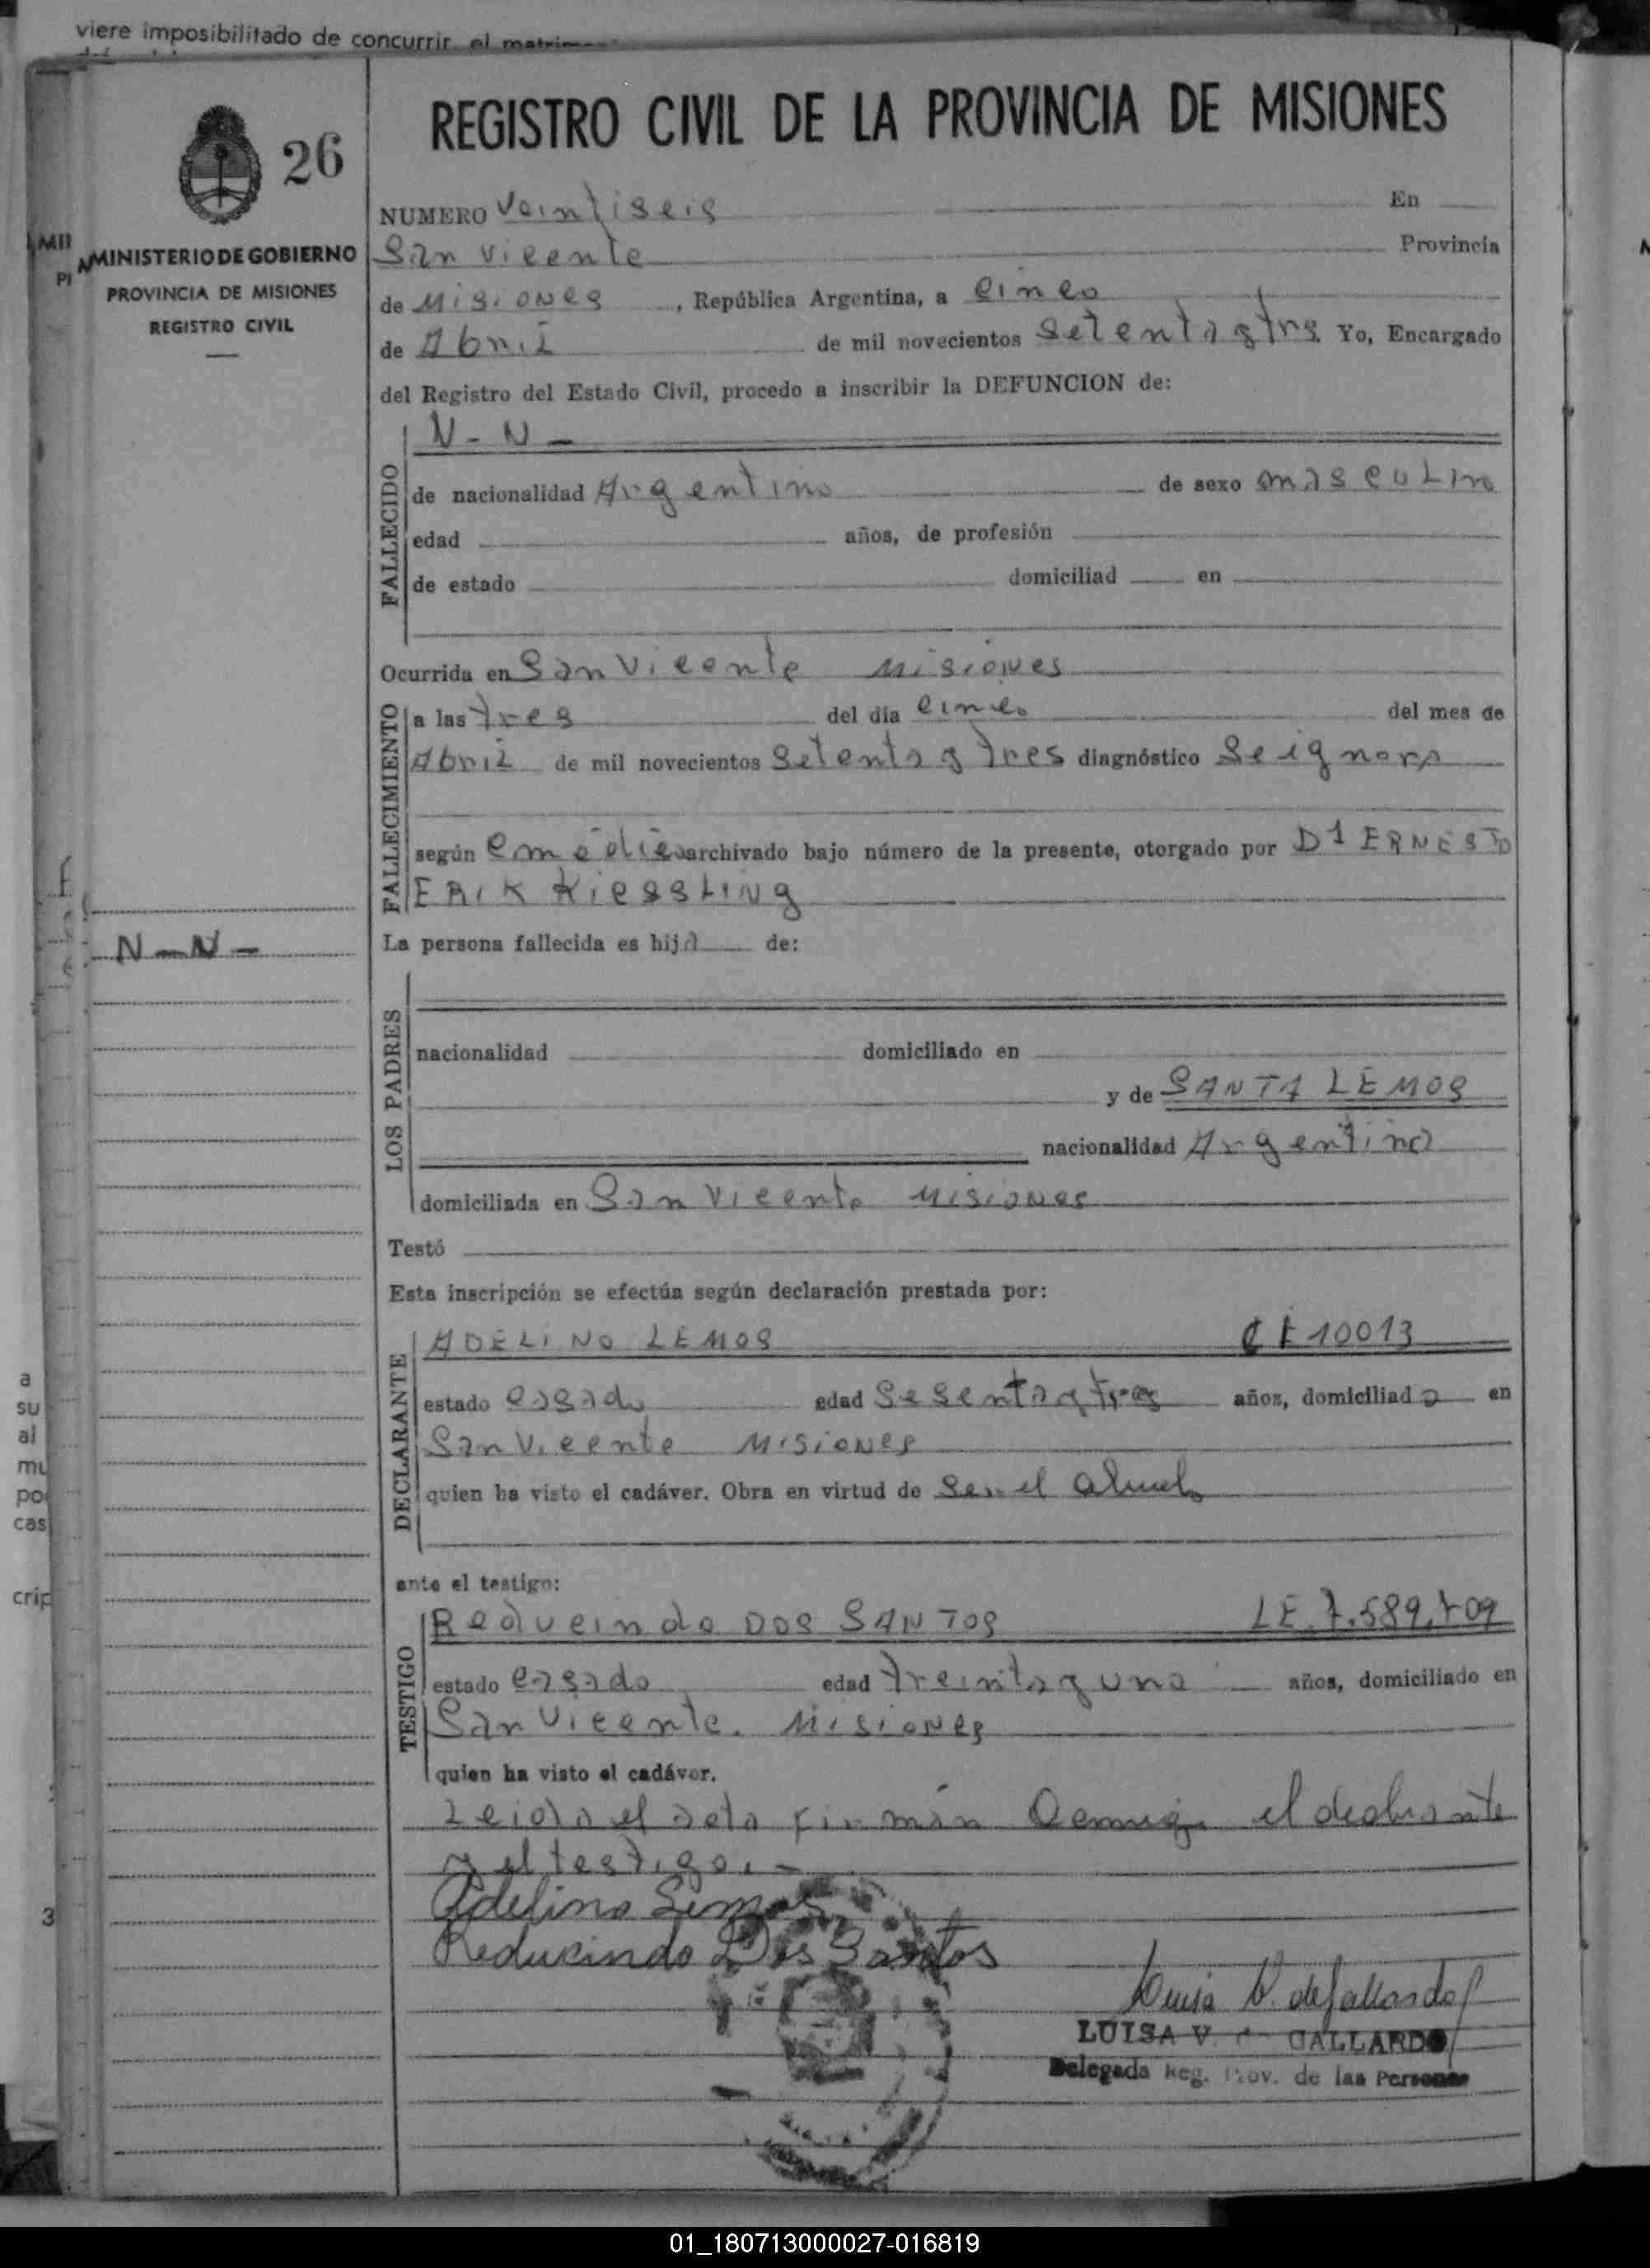 viere imposibilitado de concurrir el
26
MINISTERIO DE GOBIERNO
PROVINCIA DE MISIONES
REGISTRO CIVIL
REGISTRO CIVIL DE LA PROVINCIA DE MISIONES
NUMERO veintiseis En
San Vicente Provincia
de Misiones, República Argentina, a cinco
de Abril de mil novecientos setenta y tres Yo, Encargado
del Registro del Estado Civil, procedo a inscribir la DEFUNCION de:
FALLECIDO
N-N-
de nacionalidad Argentino de sexo masculino
edad años, de profesión
de estado domiciliad en
Ocurrida en San Vicente Misiones
FALLECIMIENTO
a las tres del día cinco del mes de
Abril de mil novecientos setenta y tres diagnóstico Se ignora
según archivado bajo número de la presente, otorgado por ERNESTO
ERIK KIESSLING
N-N-
La persona fallecida es hijo de:
LOS PADRES
nacionalidad domiciliado en
y de SANTA LEMOS
nacionalidad Argentina
domiciliada en San Vicente Misiones
Testó
Esta inscripción se efectúa según declaración prestada por:
DECLARANTE
ADELINO LEMOS 10013
estado casado edad sesenta y tres años, domiciliado en
San Vicente Misiones
quien ha visto el cadáver. Obra en virtud de Ser el abuelo
ante el testigo:
TESTIGO
DOS SANTOS LE
estado casado edad treinta y uno años, domiciliado en
San Vicente. Misiones
quien ha visto el cadáver.
Leida el acta firman Conmigo el declarante
y el testigo.-
Adelino Lemos
Reducindo Dos Santos
Luisa V. de Gallardo
LUISA V. GALLARDO
Delegada Reg. Prov. de las Personas
a
su
al
mu
po
cas
crip
3
01_180713000027-016819